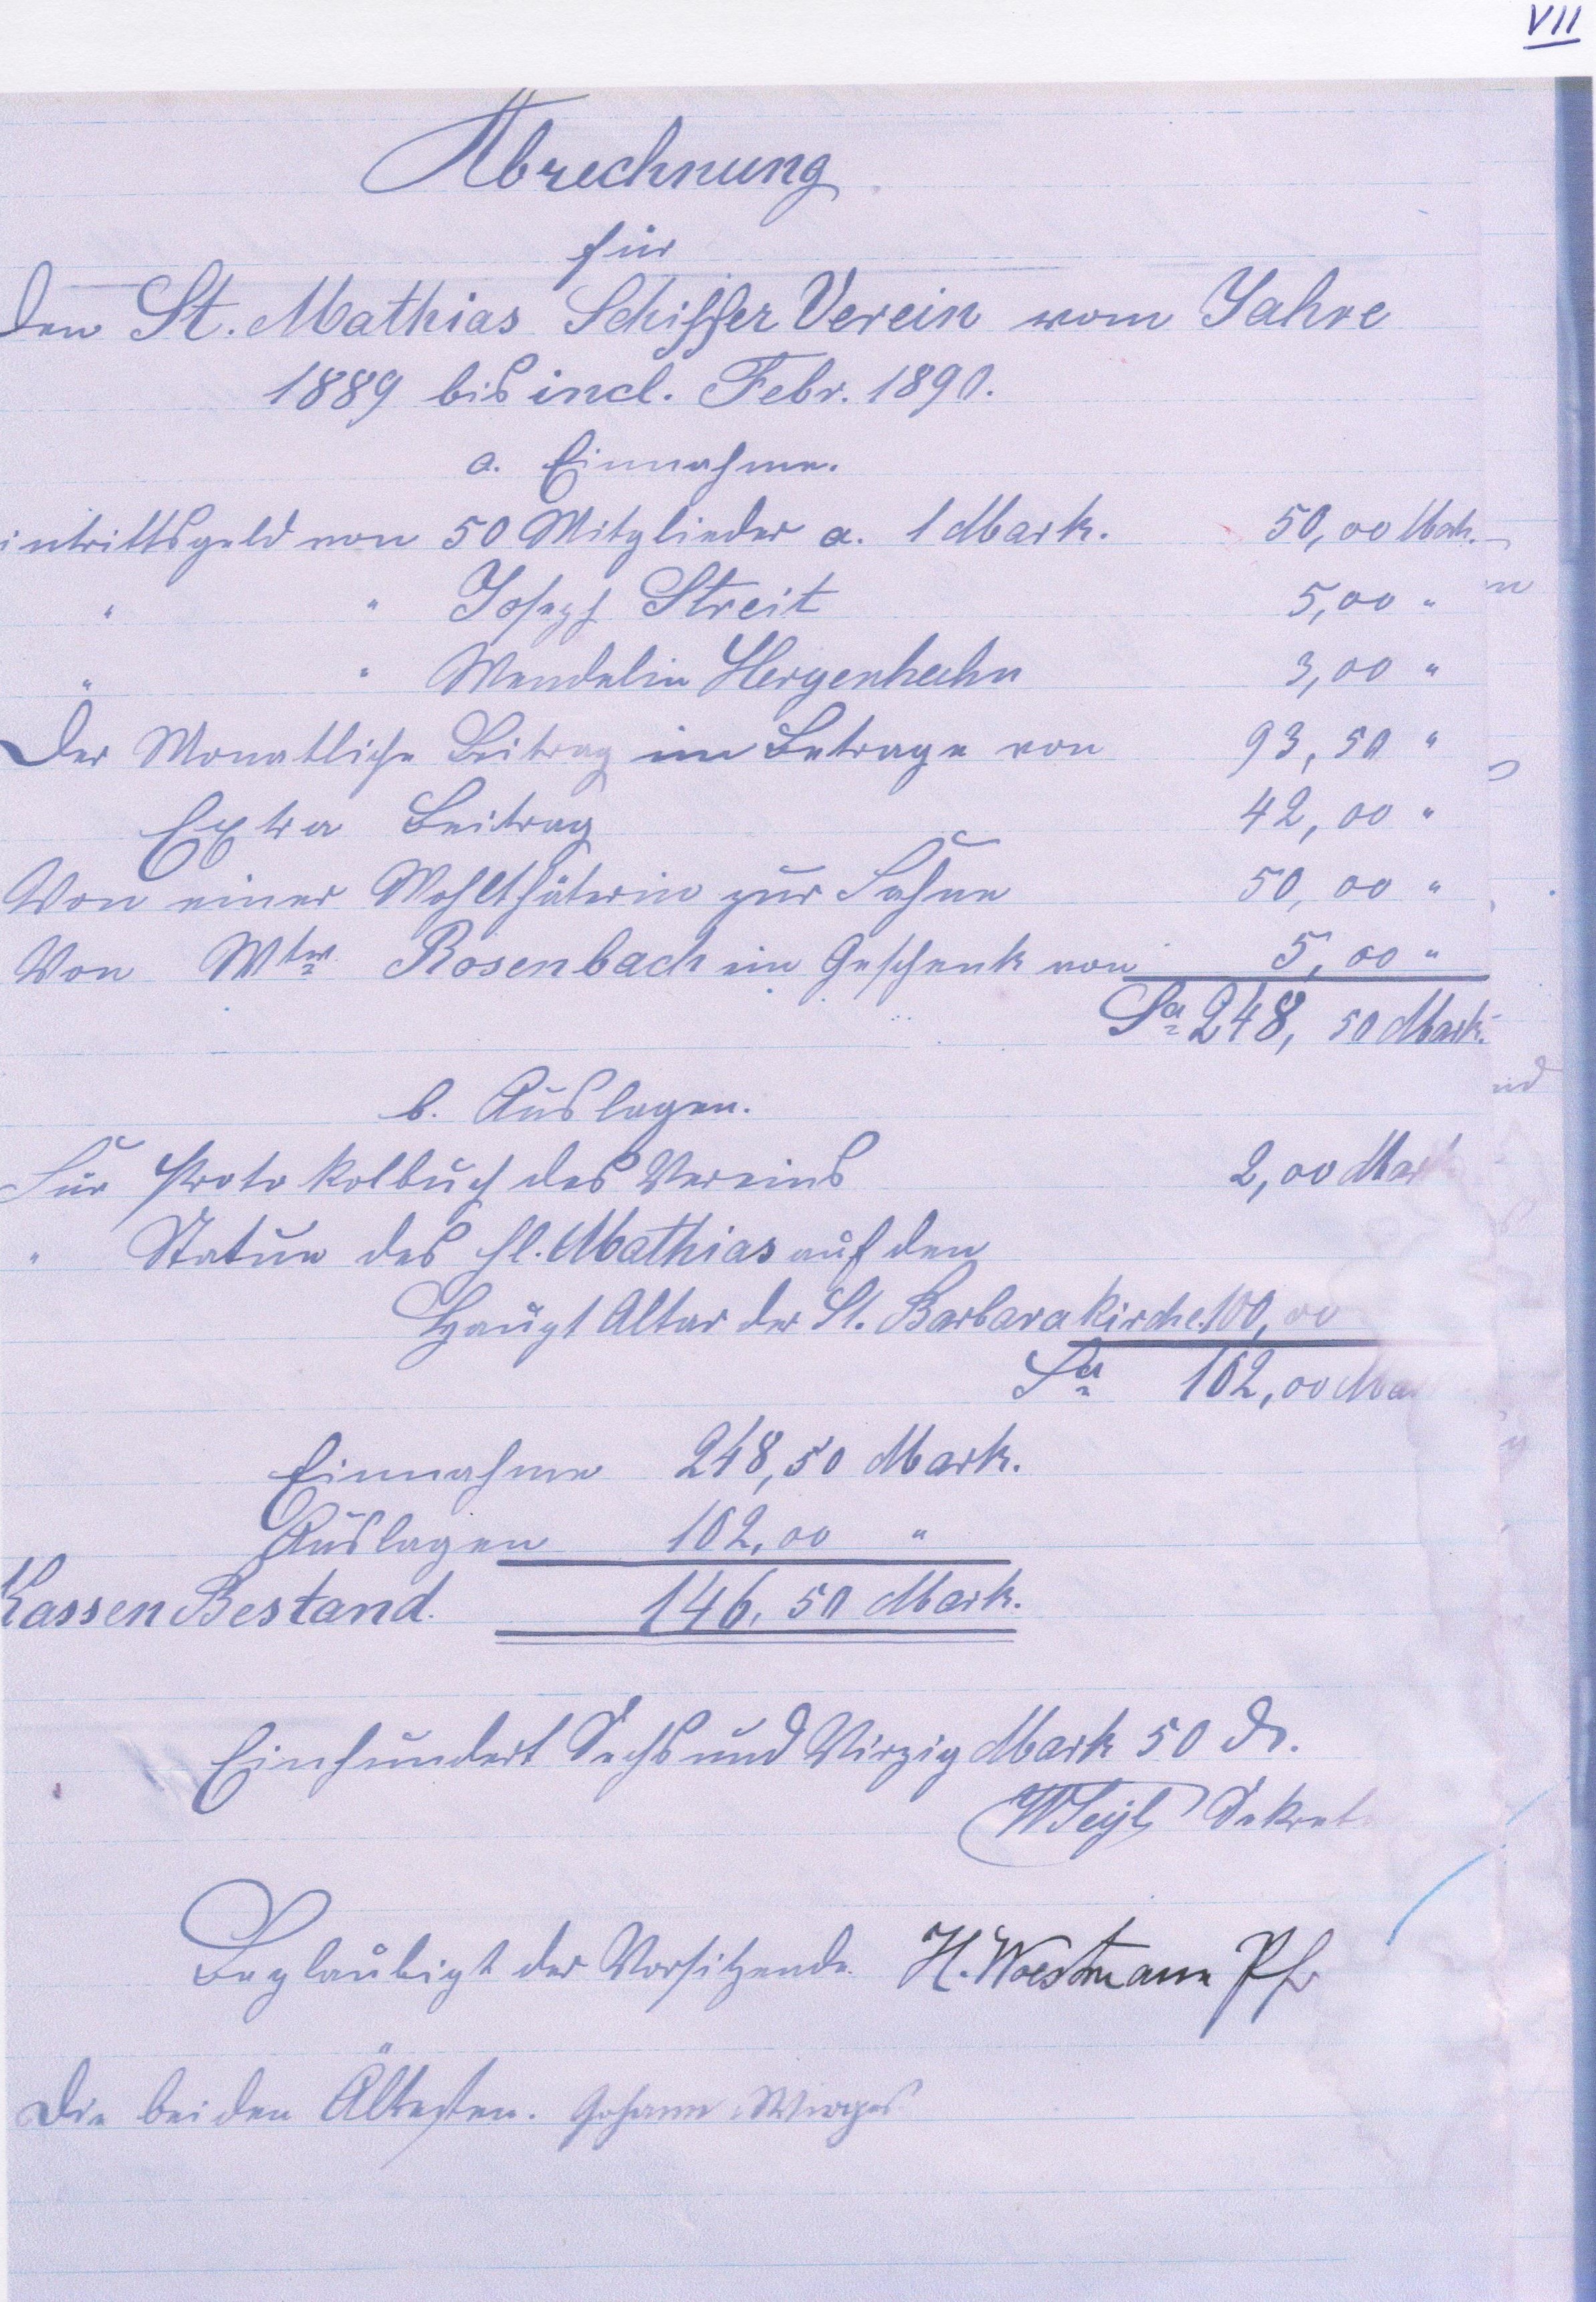 VII
Abrechnung
für
den St. Mathias Schiffer Verein vom Jahre
1889 bis incl. Febr. 1890.
a. Einnahme.
intrittsgeld von 50 Mitglieder a. 1 Mark. 50,00 Mark.
" " Joseph Streit 5,00 "
" " Wendelin Hergenhahn 3,00 "
Der Monatliche Beitrag im Betrage von 93,50 "
Extra Beitrag 42,00 "
Von einer Wohlthäterin zur Fahne 50,00 "
Von Wtw. Rosenbach im Geschenk von 5,00 "
Sa 248,50 Mark.
b. Auslagen.
Für Protokolbuch des Vereins 2,00 Mark
" Statue des hl. Mathias auf den
Haupt Altar der St. Barbara kirche 100,00
Sa 102,00 Mar
Einnahme 248,50 Mark.
Auslagen 102,00 "
Kassen Bestand. 146,50 Mark.
Einhundert Sechs und Virzig Mark 50 d.
Sekret
Beglaubigt der Vorsitzende. H. Woestmann Pfr
Die beiden Ältesten. Johann Wirges